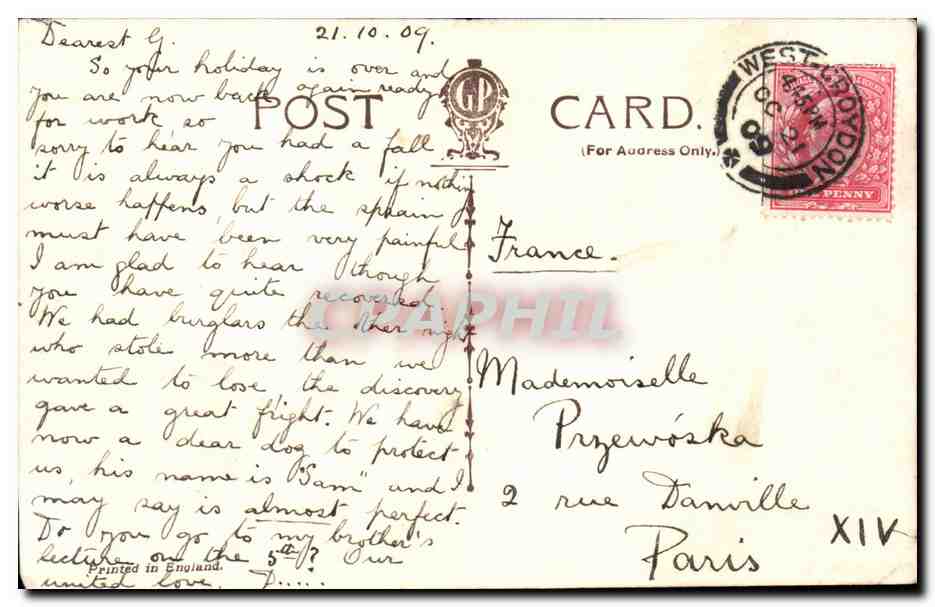 Dearest G. 21.10.09.
So your holiday is over and
you are now back again ready
for work so
sorry to hear you had a fall
it is always a shock if nothing
worse happens, but the sprain
must have been very painful
I am glad to hear though
you have quite recovered.
We had burglars the other night
who stole more than we
wanted to lose, the discovery
gave a great fright. We have
now a dear dog to protect
us, his name is "Sam" and I
may say is almost perfect.
Do you go to my brother's
lecture on the 5th? Our
united love. D.....
Printed in England.
POST CARD.
GP
(For Address Only.)
WEST CROYDON
4.15 PM
OC 21
09
PENNY
France.
Mademoiselle
Przewóska
2 rue Danville
Paris
XIV
CPAPHIL